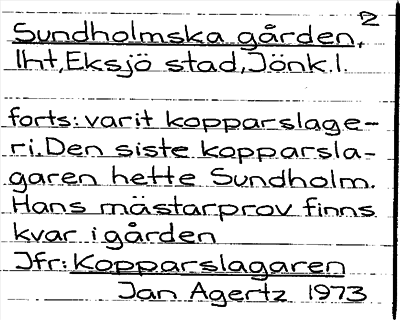 2
Sundholmska gården,
lht, Eksjö stad, Jönk.l.
forts: varit kopparslage-
ri. Den siste kopparsla-
garen hette Sundholm.
Hans mästarprov finns
kvar i gården
Jfr: Kopparslagaren
Jan Agertz 1973